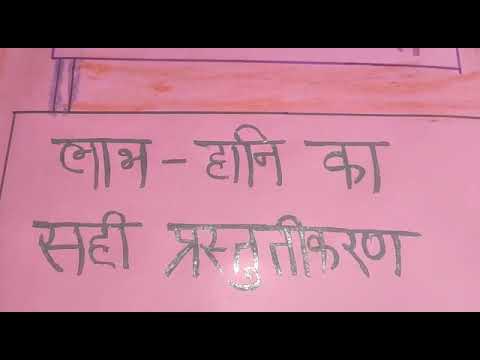 लाभ - हानि का
सही प्रस्तुतीकरण